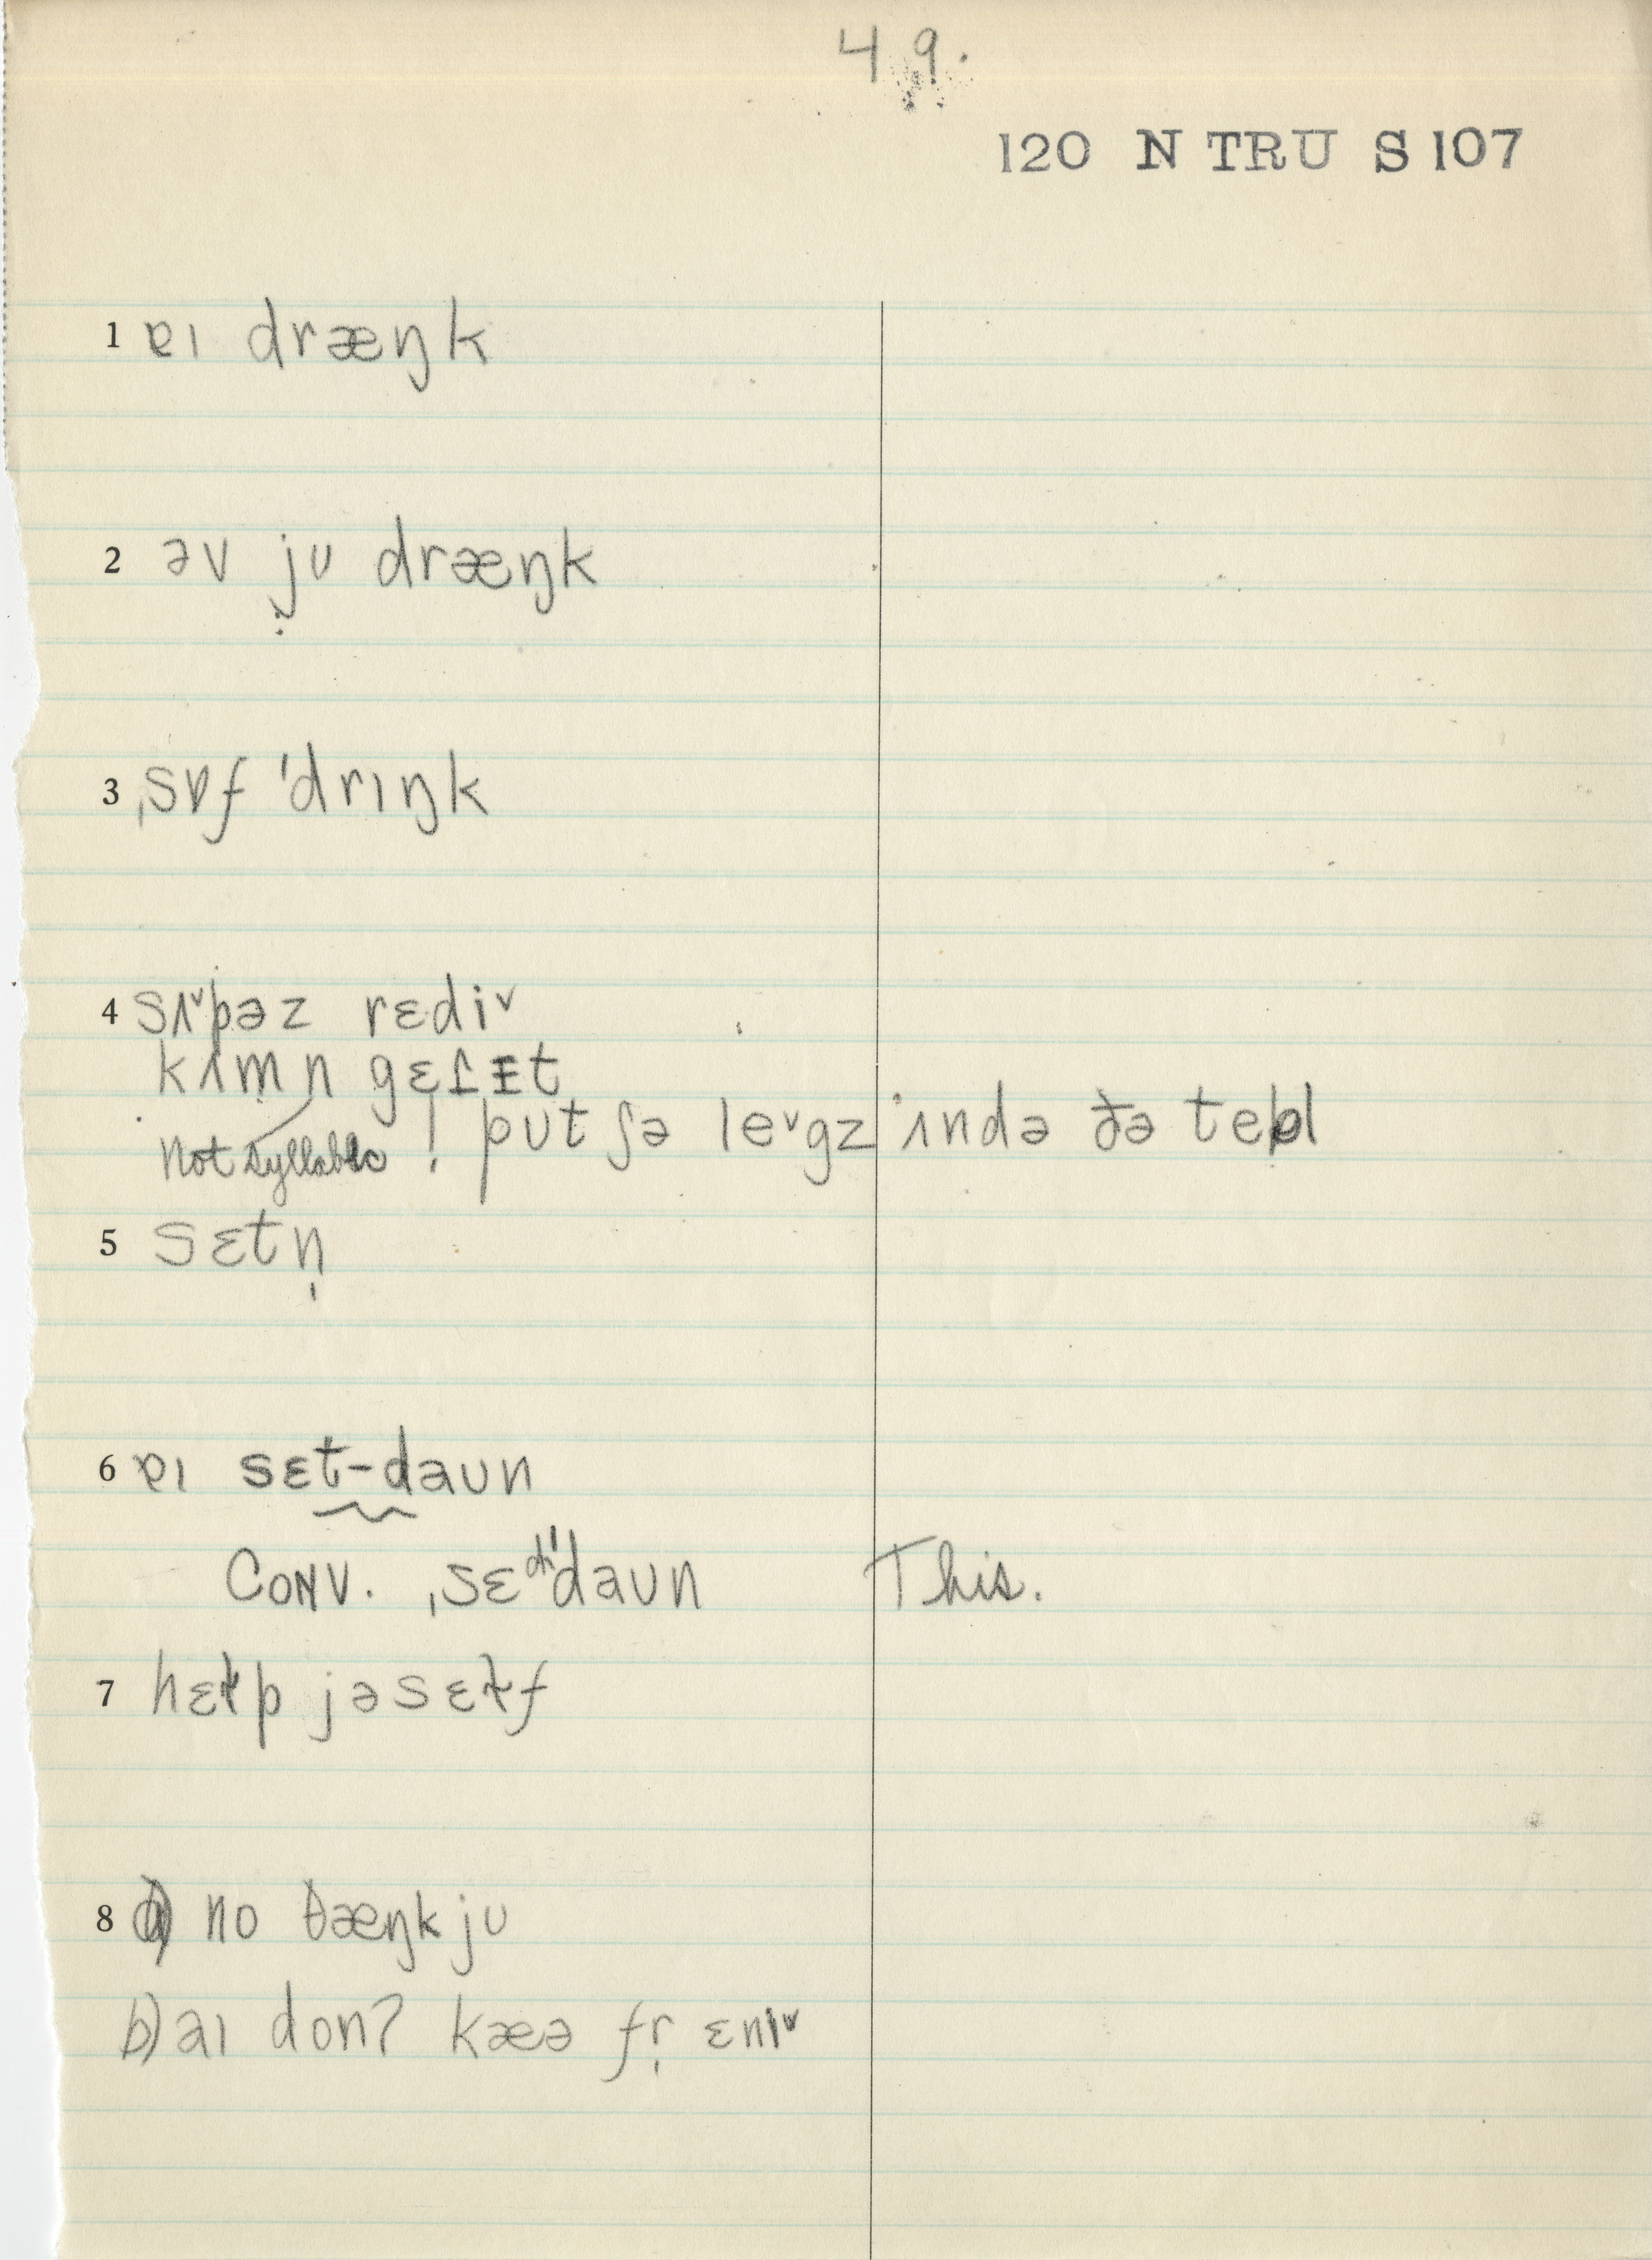 49.
120 N TRU S 107
1 ɐɪ dræŋk
2 əv jʊ dræŋk
3 ˌsɒf ˈdrɪŋk
4 sʌ˅pəz rɛdi˅
kʌm n gɛ ɪt
not syllabic ! pʊt ʃə le˅gz ʌndə ðə tebl
5 sɛtn̩
6 ɐɪ sɛt-daʊn
CONV. ˌsɛdˈdaʊn This.
7 hɛɫp jəsɛɫf
8 a) no ðæŋk jʊ
b) aɪ donʔ kæə fr̩ ɛnɪ˅